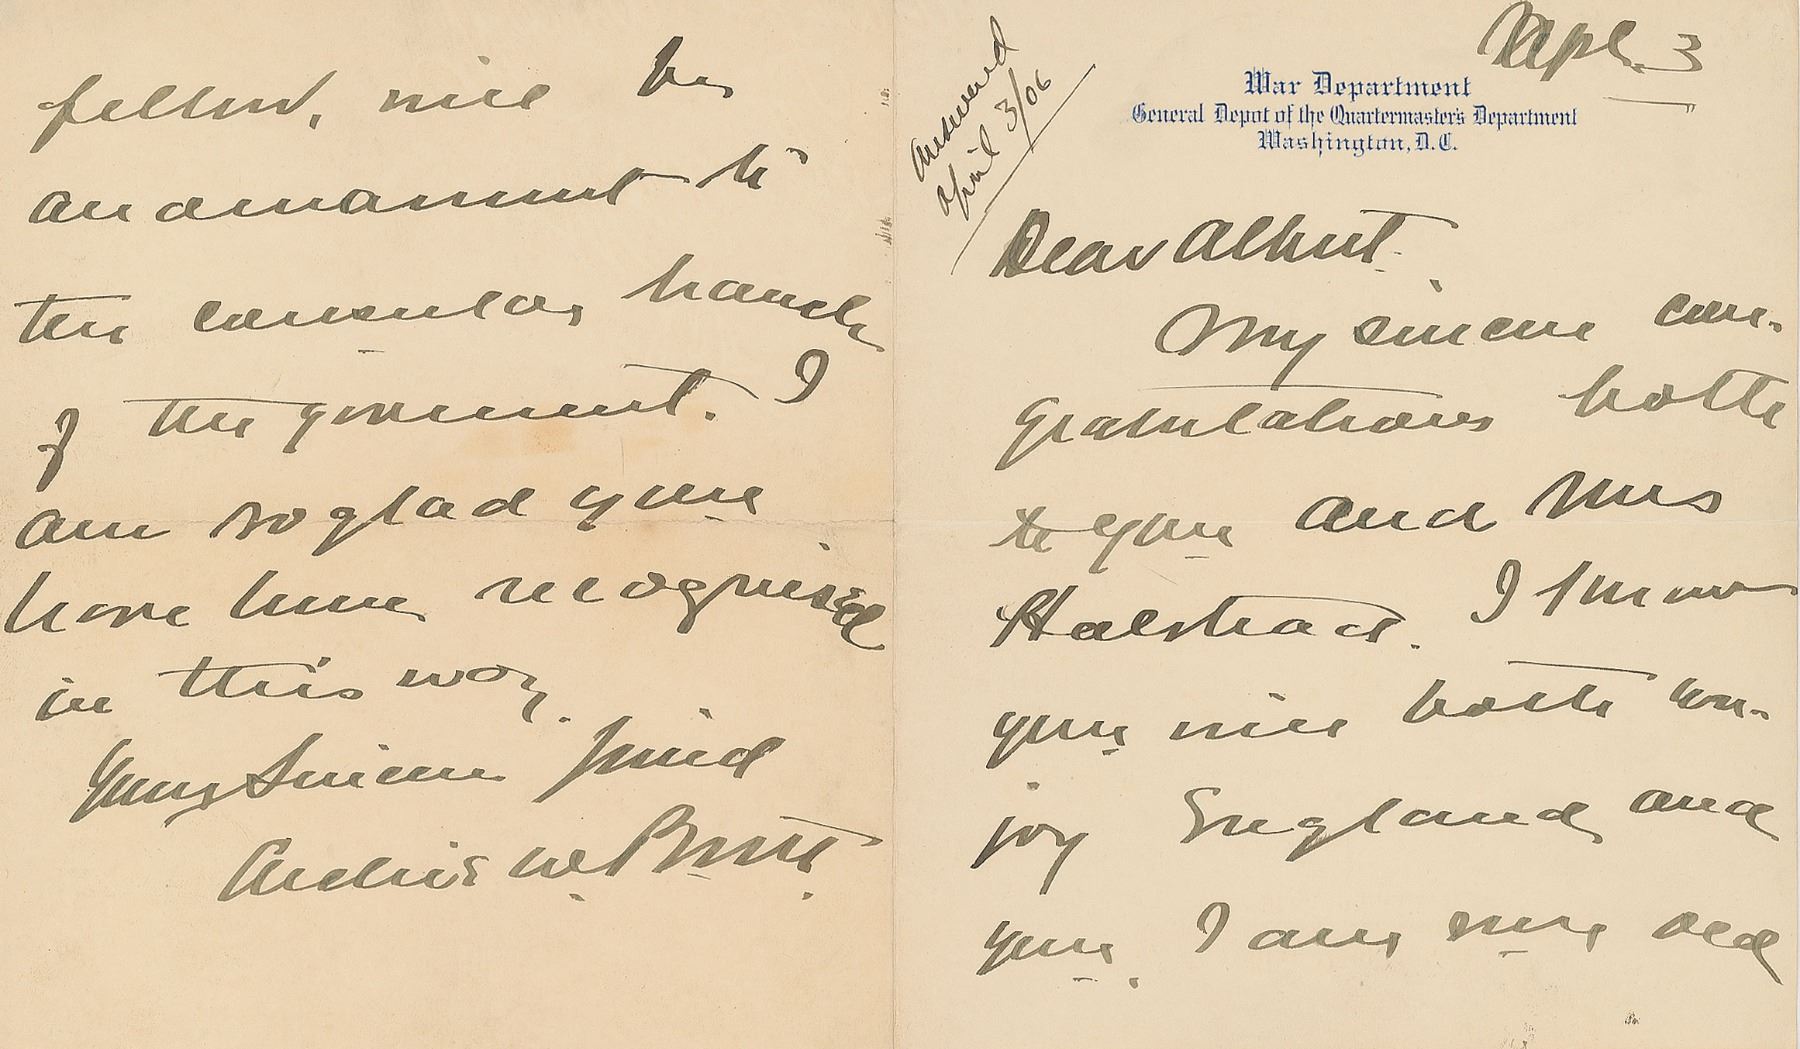 Apl. 3
War Department
General Depot of the Quartermaster's Department
Washington, D.C.
Answered
April 3/06
Dear Albert.
My sincere con-
gratulations both
to you and Mrs
Halstead. I know
you will both en-
joy England and
you, I am sure old
fellow, will be
an ornament to
the consular branch
of the goverment. I
am so glad you
have been recognised
in this way.
Your sincere friend
Archie W. Butt.